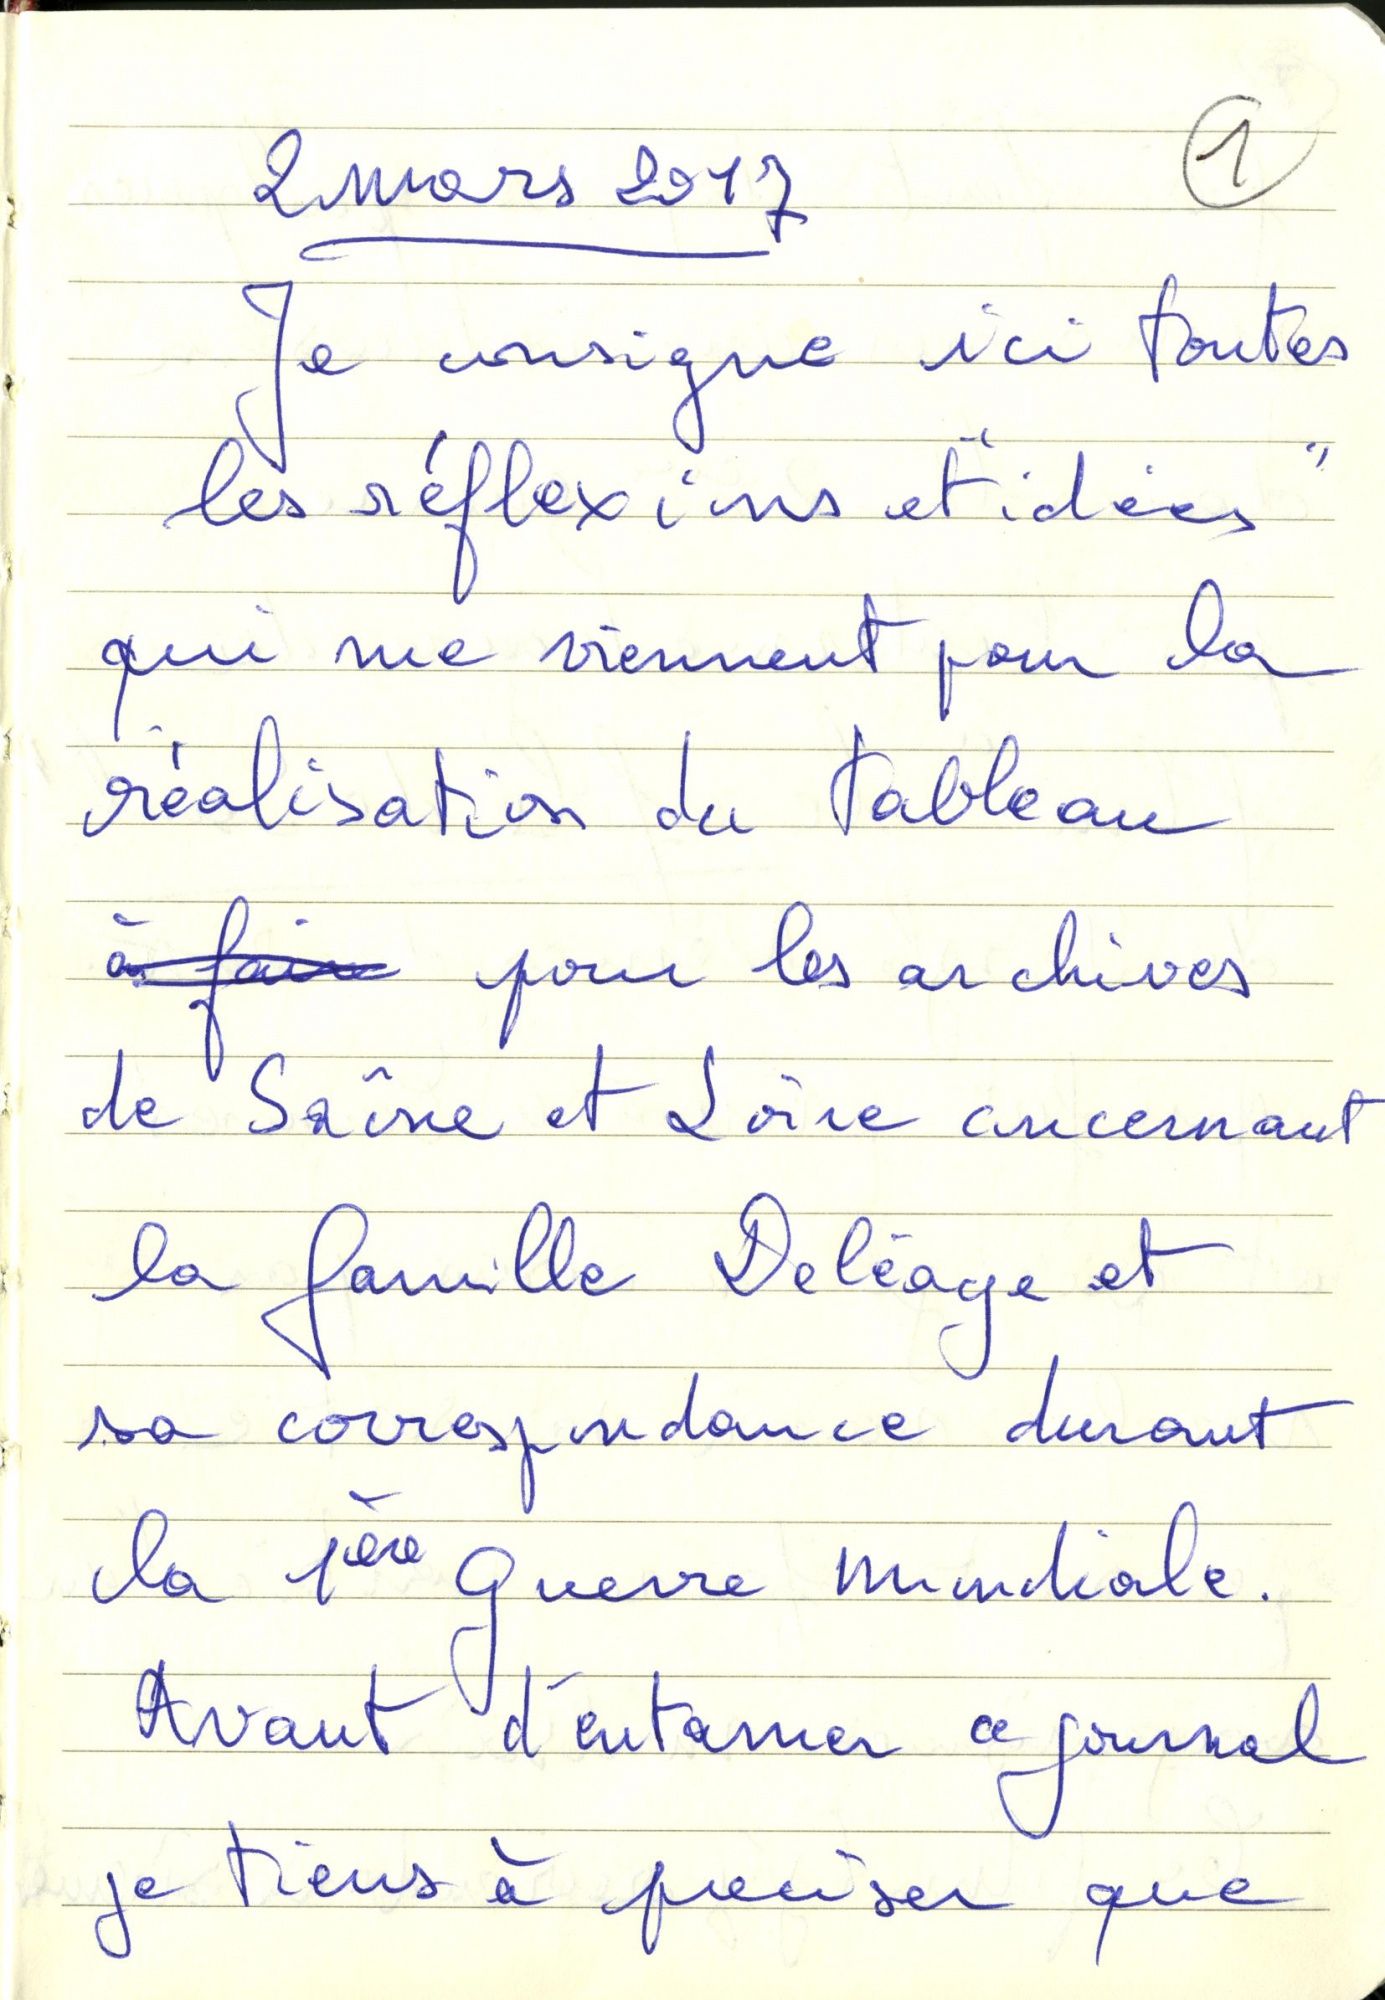 1
2 mars 2017
Je consigne ici toutes
les réflexions et "idées"
qui me viennent pour la
réalisation du tableau
à faire pour les archives
de Saône et Loire concernant
la famille Deléage et
sa correspondance durant
la 1ère Guerre mondiale.
Avant d'entamer ce journal
je tiens à preciser que